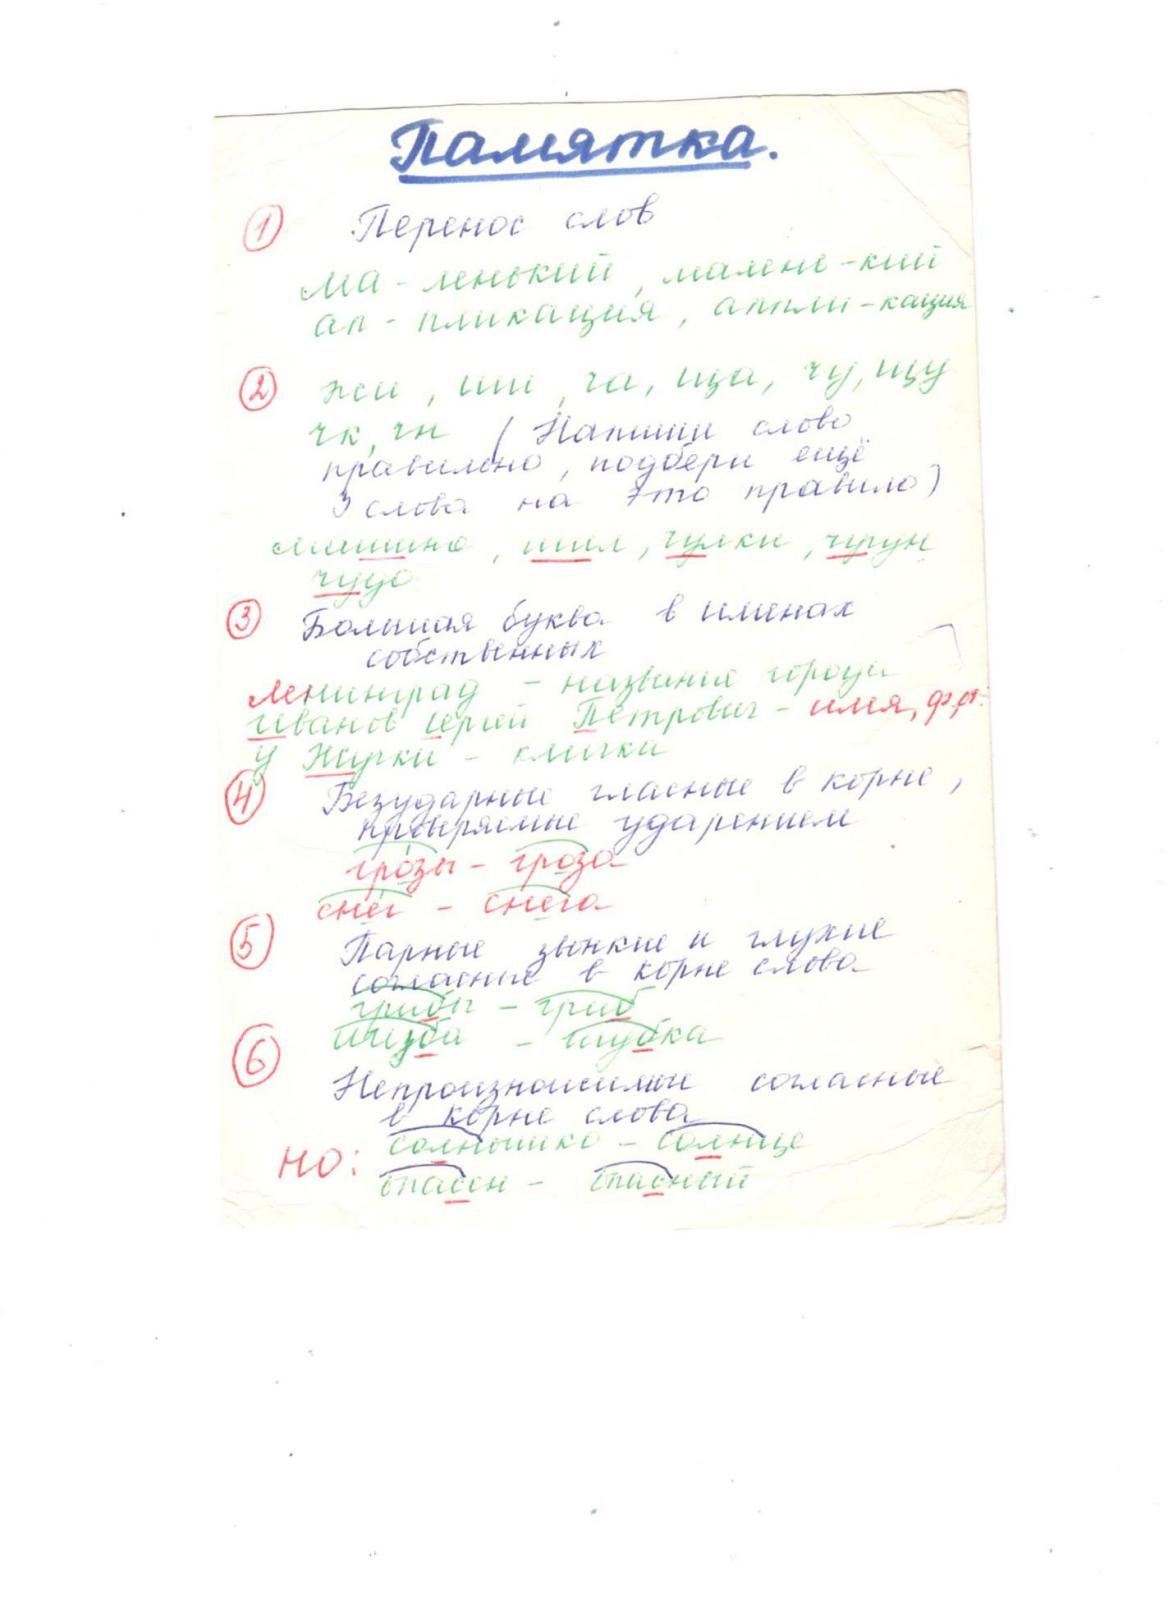 Памятка.
① Перенос слов
Ма-ленький, малень-кий
ап-пликация, аппли-кация
② жи, ши, ча, ща, чу, щу
чк, чн (Напиши слово
правильно, подбери ещё
3 слова на это правило)
шил, чулки, чугун
чудо
③ Большая буква в именах
собственных
Ленинград - название города
Иванов Сергей Петрович - имя, ф,от.
У Жучки - кличка
④ Безударные гласные в корне,
проверяемые ударением
грозы - гроза
снег - снега
⑤ Парные звонкие и глухие
согласные в корне слова
грибы - гриб
шуба - шубка
⑥ Непроизносимые согласные
в корне слова
солнышко - солнце
НО: опасен - опасный